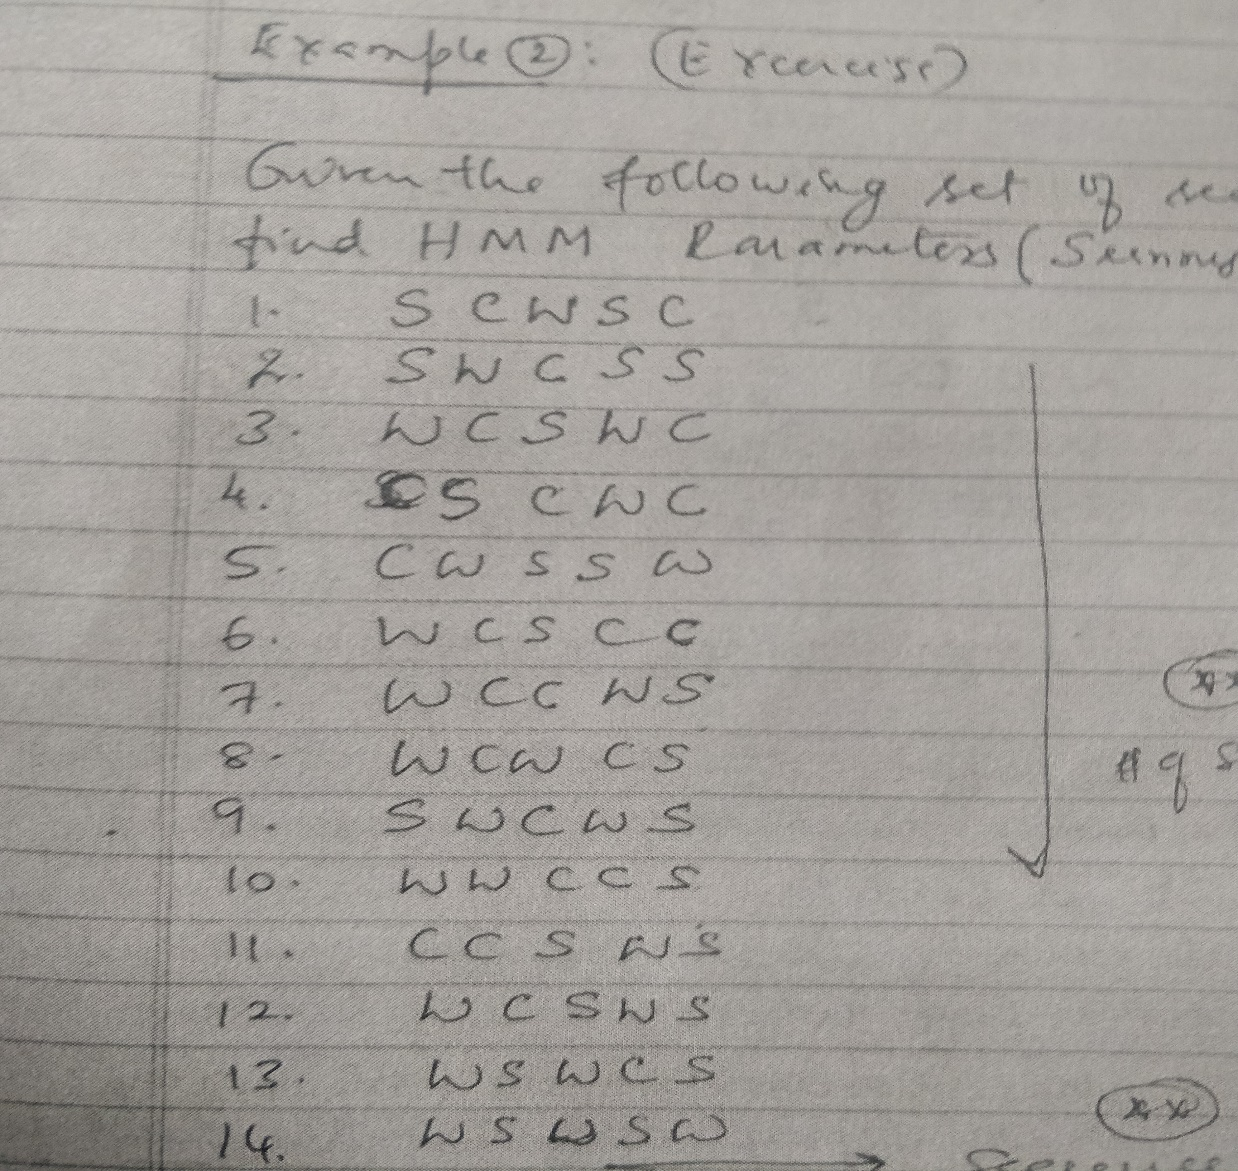 Example ②: (Exercise)
Given the following set of
find HMM Parameters (
1. S C W S C
2. S W C S S
3. W C S W C
4. S C W C
5. C W S S W
6. W C S C C
7. W C C W S
8. W C W C S
9. S W C W S
10. W W C C S
11. C C S W S
12. W C S W S
13. W S W C S
14. W S W S W